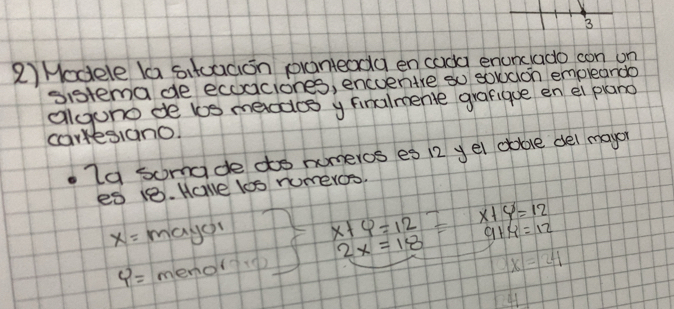 3
2) Modele la situación planteada en cada enunciado con un
sistema de ecuaciones, encuentre su solución empleando
alguno de los metodos y finalmente grafique en el plano
cartesiano.
• La suma de dos numeros es 12 y el doble del mayor
es 18. Halle los numeros.
x = mayor
y = menor
x+y=12
2x=18
=
x+y=12
9+y=12